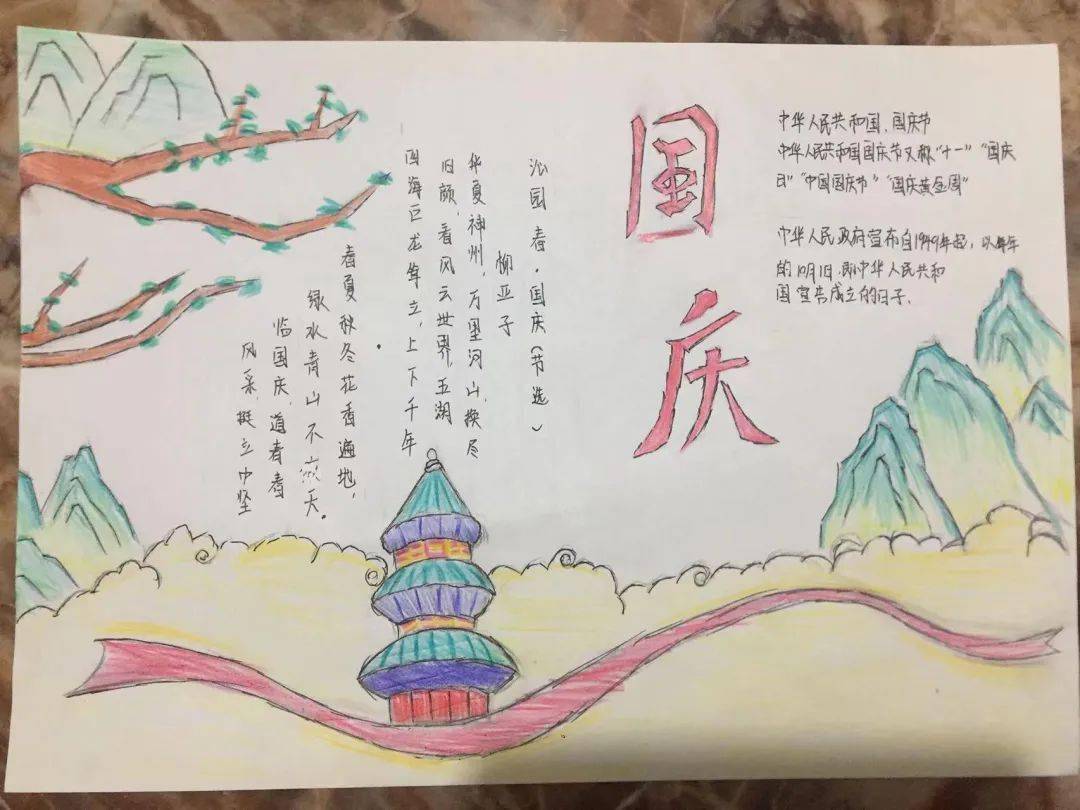 国庆
中华人民共和国,国庆节
中华人民共和国国庆节又称“十一”“国庆
日”“中国国庆节”“国庆黄金周”
中华人民政府宣布自1949年起,以每年
的10月1日,即中华人民共和
国宣告成立的日子.
沁园春·国庆(节选)
柳亚子
华夏神州,万里河山,换尽
旧颜,看风云世界,五湖
四海巨龙耸立,上下千年
春夏秋冬花香遍地,
绿水青山不天。
临国庆,道春春
风采,挺立中坚